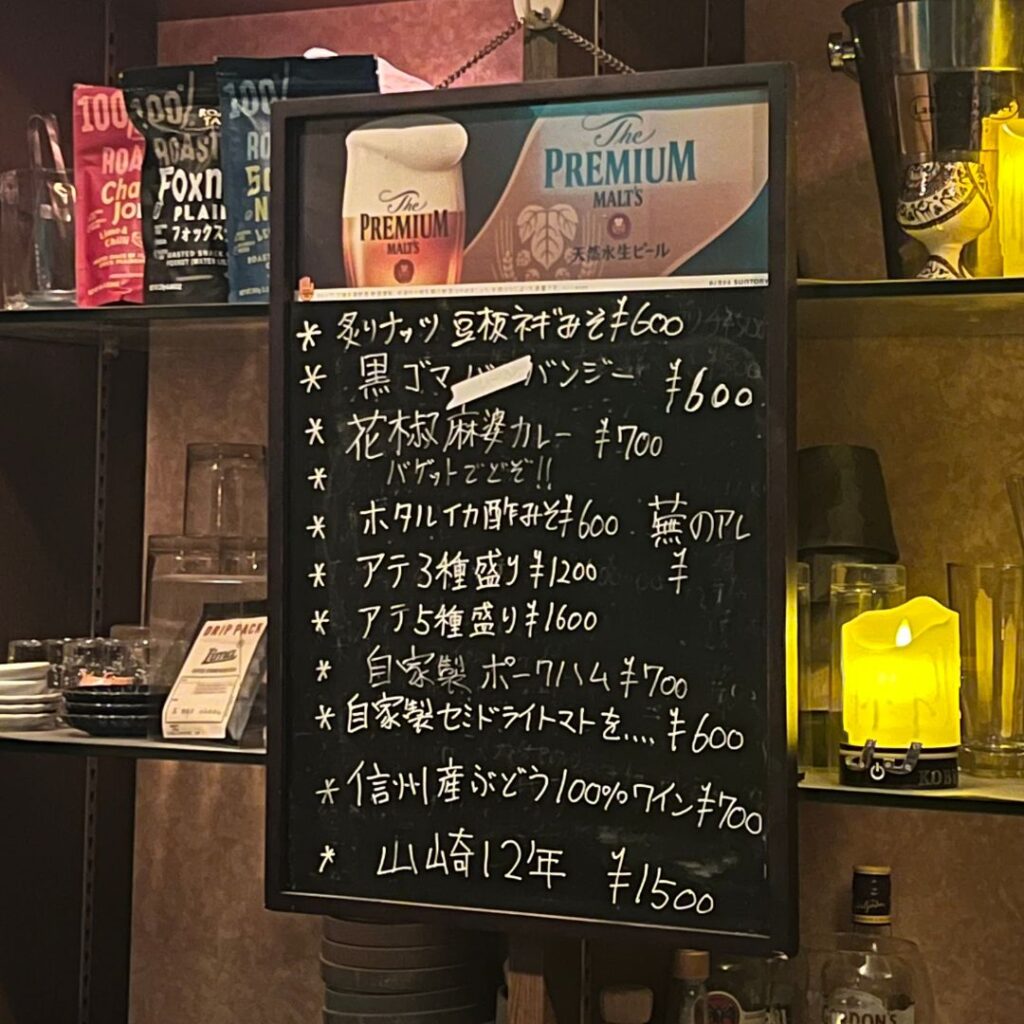 100%
ROA
Cha
Jo
Lime &
Chilli
100%
ROAST
FOXN
PLAIN
フォックス
100%
RO
The
PREMIUM
MALT'S
The
PREMIUM
MALT'S
天然水生ビール
SUNTORY
* 炙りナッツ 豆板ネギみそ ¥600
* 黒ゴマバンバンジー ¥600
* 花椒麻婆カレー ¥700
* バゲットでどぞ!!
* ホタルイカ酢みそ ¥600 蕪のアレ
* アテ3種盛り ¥1200 ¥
* アテ5種盛り ¥1600
* 自家製 ポークハム ¥700
* 自家製セミドライトマトを.... ¥600
* 信州産ぶどう100%ワイン ¥700
* 山崎12年 ¥1500
DRIP PACK
KOB
GORDON'S